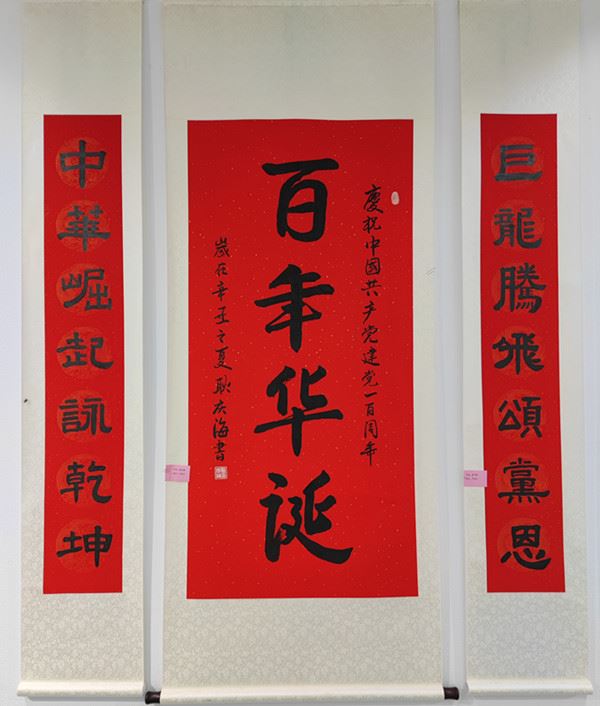 巨龍騰飛頌黨恩
慶祝中國共产党建党一百周年
百年华诞
歲在辛丑之夏耿庆海書
中華崛起詠乾坤